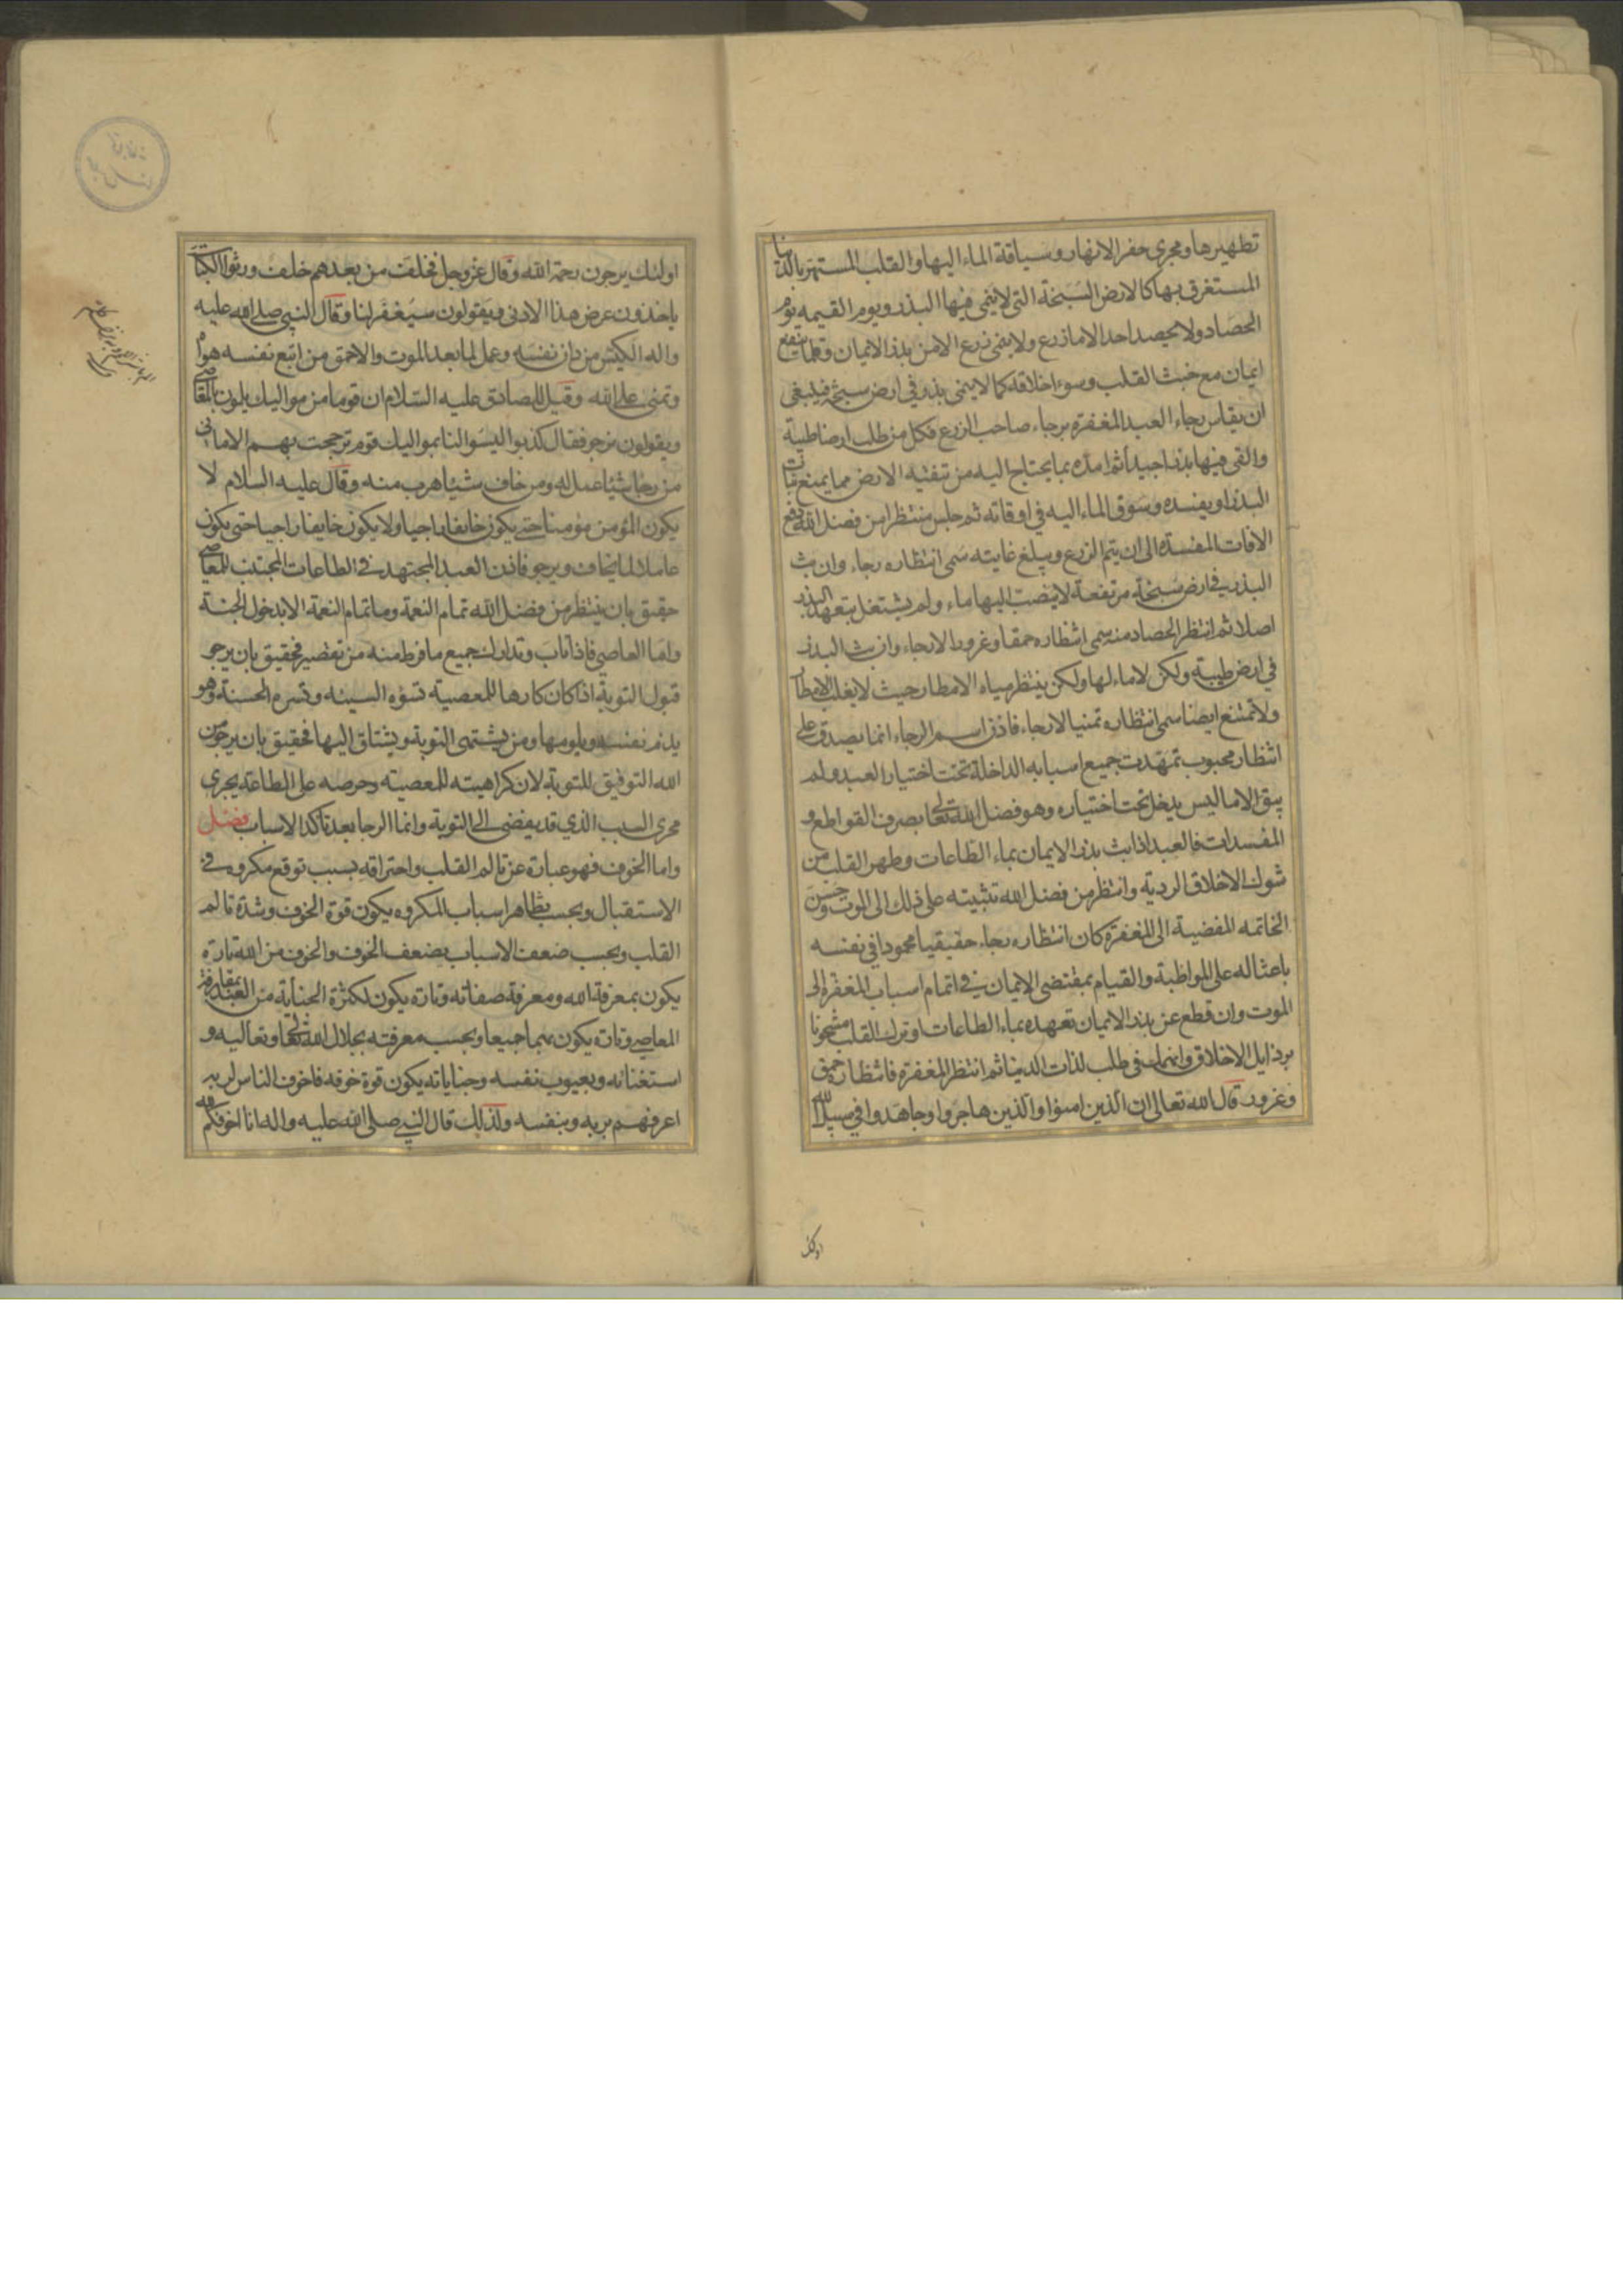 تطهيرها ومجرى حفر الانهار وسياقة الماء اليها والقلب المستهتر بالدنيا
المستغرق بها كالارض السبخة التى لا ينمى فيها البذر ويوم القيمه يوم
الحصاد ولا يحصد احد الا ما زرع ولا ينمى زرع الا من بذر الايمان وقلما ينفع
ايمان مع خبث القلب وسوء اخلاقه كما لا ينمى بذر فى ارض سبخة فينبغى
ان يقاس رجاء العبد المغفرة برجاء صاحب الزرع فكل من طلب ارضا طيبة
والقى فيها بذرا جيدا ثم امده بما يحتاج اليه من تنقية الارض مما يمنع نبات
البذر او يفسده وسوق الماء اليه فى اوقاته ثم جلس منتظرا من فضل الله دفع
الافات المفسدة الى ان يتم الزرع ويبلغ غايته سمى انتظاره رجاء وان بث
البذر فى ارض سبخة مرتفعة لا ينصب اليها ماء ولم يشتغل بتعهد البذر
اصلا ثم انتظر الحصاد منه سمى انتظاره حمقا وغرورا لا رجاء وان بث البذر
فى ارض طيبة ولكن لا ماء لها ولكن ينتظر مياه الامطار حيث لا يغلب الامطار
ولا تمتنع ايضا سمى انتظاره تمنيا لا رجاء فاذن اسم الرجاء انما يصدق على
انتظار محبوب تمهدت جميع اسبابه الداخلة تحت اختيار العبد ولم
يبق الا ما ليس يدخل تحت اختياره وهو فضل الله تعالى بصرف القواطع و
المفسدات فالعبد اذا بث بذر الايمان بماء الطاعات وطهر القلب من
شوك الاخلاق الردية وانتظر من فضل الله تثبيته على ذلك الى الموت وحسن
الخاتمه المفضية الى المغفرة كان انتظاره رجاء حقيقيا محمودا فى نفسه
باعثا له على المواظبة والقيام بمقتضى الايمان فى اتمام اسباب المغفرة الى
الموت وان قطع عن بذر الايمان تعهده بماء الطاعات او ترك القلب مشحونا
برذايل الاخلاق وانهمك فى طلب لذات الدنيا ثم انتظر المغفرة فانتظاره حمق
وغرور قال الله تعالى ان الذين امنوا والذين هاجروا وجاهدوا فى سبيل الله
اولئك
اولئك يرجون رحمة الله وقال عز وجل فخلف من بعدهم خلف ورثوا الكتاب
ياخذون عرض هذا الادنى ويقولون سيغفر لنا وقال النبى صلى الله عليه
واله الكيس من دان نفسه وعمل لما بعد الموت والاحمق من اتبع نفسه هواه
وتمنى على الله وقيل للصادق عليه السلام ان قوما من مواليك يلمون بالمعاصى
ويقولون نرجو فقال كذبوا ليسوا لنا بموال اليك قوم ترجحت بهم الامانى
من رجا شيئا عمل له ومن خاف شيئا هرب منه وقال عليه السلام لا
يكون المؤمن مؤمنا حتى يكون خايفا راجيا ولا يكون خايفا راجيا حتى يكون
عاملا لما يخاف ويرجو فاذن العبد المجتهد فى الطاعات المجتنب للمعاصى
حقيق بان ينتظر من فضل الله تمام النعمة وما تمام النعمة الا بدخول الجنة
واما العاصى فاذا تاب وتدارك جميع ما فرط منه من تقصير فحقيق بان يرجو
قبول التوبة اذا كان كارها للمعصية تسؤه السيئه وتسره الحسنة وهو
يذم نفسه ويلومها ومن يشتهى التوبة ويشتاق اليها فحقيق بان يرجو من
الله التوفيق للتوبة لان كراهيته للمعصيته وحرصه على الطاعة يجرى
مجرى السبب الذي قد يفضى الى التوبة وانما الرجا بعد تاكد الاسباب فصل
واما الخوف فهو عبارة عن تالم القلب واحتراقه بسبب توقع مكروه فى
الاستقبال وبحسب تظاهر اسباب المكروه يكون قوة الخوف وشدة تالم
القلب وبحسب ضعف الاسباب يضعف الخوف والخوف من الله تارة
يكون بمعرفة الله ومعرفة صفاته وتارة يكون لكثرة الجناية من العبد بمقارفة
المعاصى وتارة يكون بهما جميعا وبحسب معرفته بجلال الله تعالى وتعاليه و
استغنائه وبعيوب نفسه وجناياته يكون قوة خوفه فاخوف الناس لربه
اعرفهم بربه وبنفسه ولذلك قال النبى صلى الله عليه واله انا اخوفكم لله